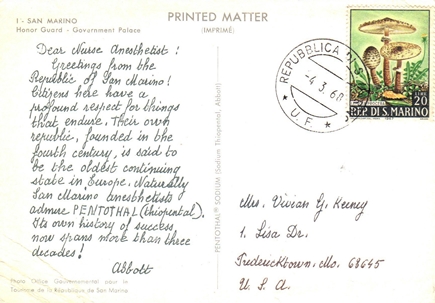 1 - SAN MARINO
Honor Guard - Government Palace
PRINTED MATTER
(IMPRIMÉ)
Dear Nurse Anesthetist:
Greetings from the
Republic of San Marino!
Citizens here have a
profound respect for things
that endure. Their own
republic, founded in the
fourth century, is said to
be the oldest continuing
state in Europe. Naturally
San Marino anesthetists
admire PENTOTHAL (thiopental).
Its own history of success
now spans more than three
decades!
Abbott
Tourisme de la République de San Marino
PENTOTHAL® SODIUM (Sodium Thiopental, Abbott)
REPUBBLICA DI S.
-4.3.68
* U.F. *
LIRE 20
REP. DI S. MARINO
1967
Mrs. Vivian G. Keeney
1. Lisa Dr.
Fredericktown, Mo. 63645
U. S. A.